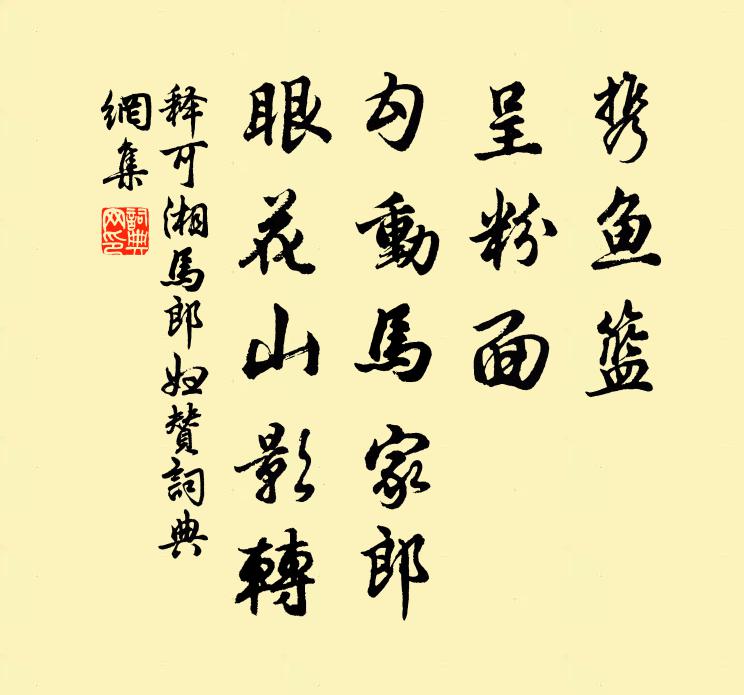 携鱼籃
呈粉面
勾動馬家郎
眼花山影轉
释可湘馬郎妇赞詞典
網集
詞典网印